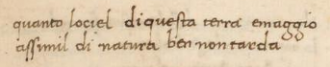 quanto lociel di questa terra emaggio
assimil di natura ben non tarda